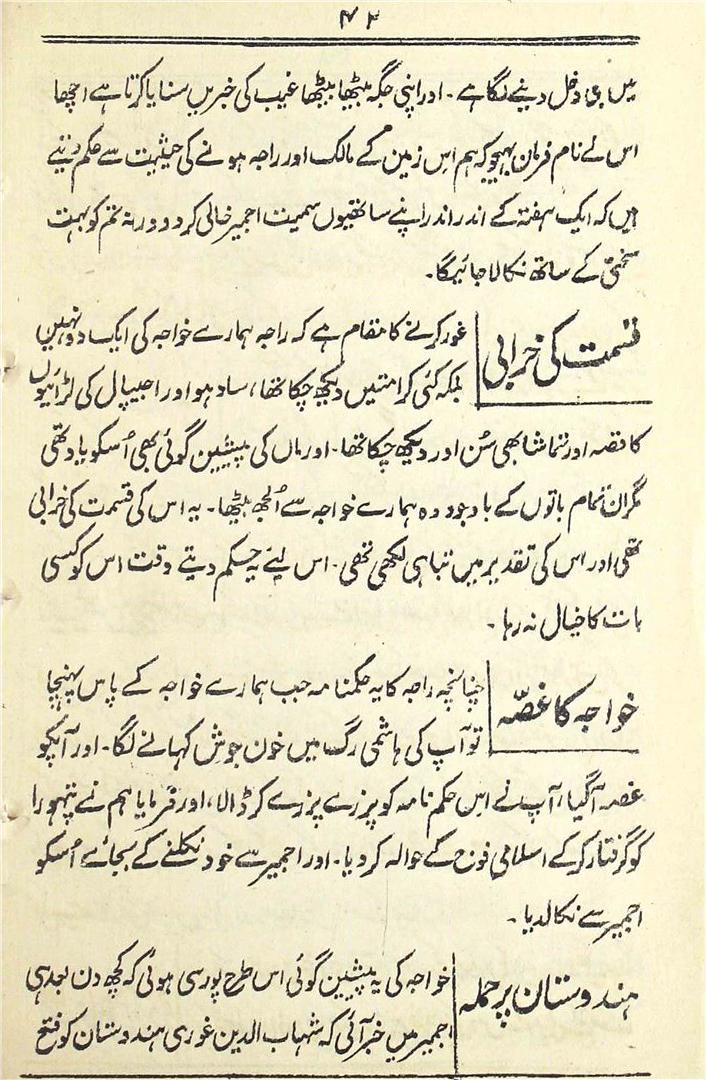 ۴۲
میں بھی دخل دینے لگا ہے۔ اور اپنی جگہ بیٹھا بیٹھا غیب کی خبریں سنایا کرتا ہے اچھا
اس کے نام فرمان بھیجو کہ ہم اس زمین کے مالک اور راجہ ہونے کی حیثیت سے حکم دیتے
ہیں کہ ایک ہفتہ کے اندر اندر اپنے ساتھیوں سمیت اجمیر خالی کردو ورنہ تم کو بہت
سختی کے ساتھ نکالا جائیگا۔
قسمت کی خرابی
غور کرنے کا مقام ہے کہ راجہ ہمارے خواجہ کی ایک دو نہیں
بلکہ کئی کرامتیں دیکھ چکا تھا، سادہو اور اجیپال کی لڑائیوں
کا قصہ اور تماشا بھی سُن اور دیکھ چکا تھا۔ اور ماں کی پیشین گوئی بھی اُسکو یاد تھی
مگر ان تمام باتوں کے باوجود وہ ہمارے خواجہ سے اُلجھ بیٹھا۔ یہ اس کی قسمت کی خرابی
تھی اور اس کی تقدیر میں تباہی لکھی تھی۔ اس لئے یہ حکم دیتے وقت اس کو کسی
بات کا خیال نہ رہا۔
خواجہ کا غصّہ
چنانچہ راجہ کا یہ حکمنامہ جب ہمارے خواجہ کے پاس پہنچا
تو آپ کی ہاشمی رگ میں خون جوش کہانے لگا۔ اور آپکو
غصہ آگیا، آپ نے اس حکم نامہ کو پرزے پرزے کر ڈالا، اور فرمایا ہم نے پتہورا
کو گرفتار کر کے اسلامی فوج کے حوالہ کر دیا۔ اور اجمیر سے خود نکلنے کے بجائے اُسکو
اجمیر سے نکالدیا۔
ہندوستان پر حملہ
خواجہ کی یہ پیشین گوئی اس طرح پوری ہوئی کہ کچھ دن بعد ہی
اجمیر میں خبر آئی کہ شہاب الدین غوری ہندوستان کو فتح